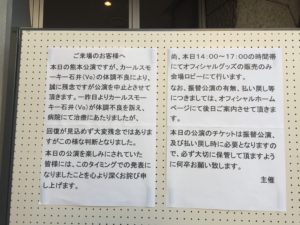 ご来場のお客様へ
本日の熊本公演ですが、カールスモーキー石井(Vo)の体調不良により、
誠に残念ですが公演を中止とさせて
頂きます。一昨日よりカールスモーキー
石井(Vo)が体調不良を訴え、
病院にて治療にあたりましたが、
回復が見込めず大変残念ではありま
すがこの様な判断となりました。
本日の公演を楽しみにされていた
皆様には、このタイミングでの発表に
なりましたことを心より深くお詫び申
し上げます。
尚、本日14:00~17:00の時間帯
にてオフィシャルグッズの販売のみ
会場ロビーにて行います。
なお、振替公演の有無、払い戻し等
につきましては、オフィシャルホーム
ページにて後日ご案内させて頂きま
す。
本日の公演のチケットは振替公演、
及び払い戻し時に必要となりますの
で、必ず大切に保管して頂きますよう
に何卒お願い致します。
主催